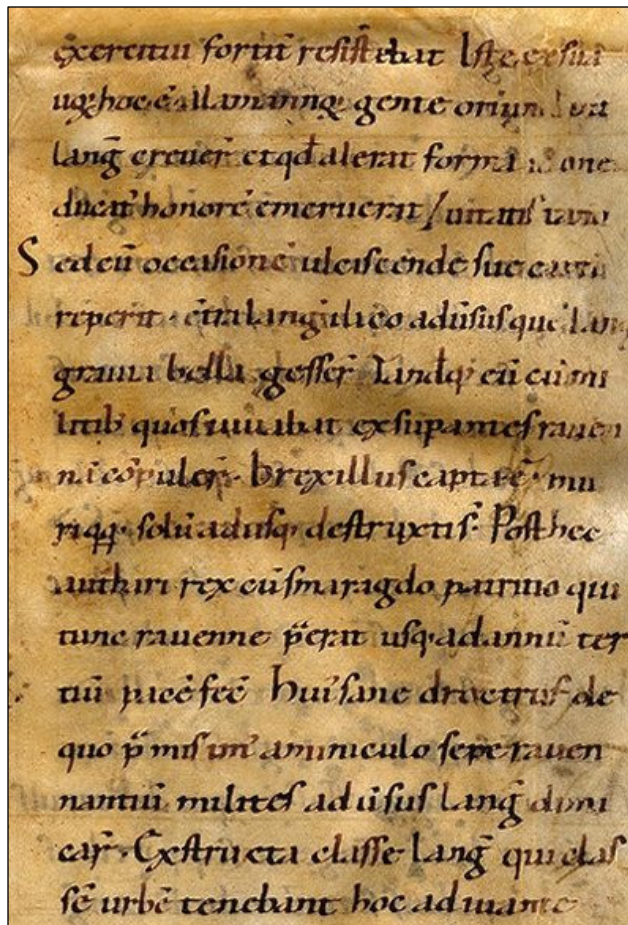 exercitui fortit̄ resistebat Iste ex sua
uoꝝ hoc ē alamannoꝝ gente oriun
lang̃ creuer̃ et qđ alerat forma idone
ducat᾽ honorē emeruerat
Sed cū occasionē ulciscende sue capti
reperit · ct̄ra lang̃ ilico adūsus que lang
grauia bella gesser̃ Tandē q; eū cū mi
litib᾽ quos iuuabat exsuꝑantes rauen
nā cōpuler̃ · brexillus capta ē · mu
riqꝫ · solū adusqꝫ destructi s̄t · Post hec
authari rex cū smaragdo patritio qui
tunc rauenne p̄erat usqꝫ ad annū ter
tiū pacē fec̄ hui᾽ sane droctrufs de
quo p̄misim᾽ aminiculo sepe rauen
nantiū milites adūsus lang̃ dimi
car̃ · Exstructa classe lang̃ qui clas
sē urbē tenebant hoc adiuante